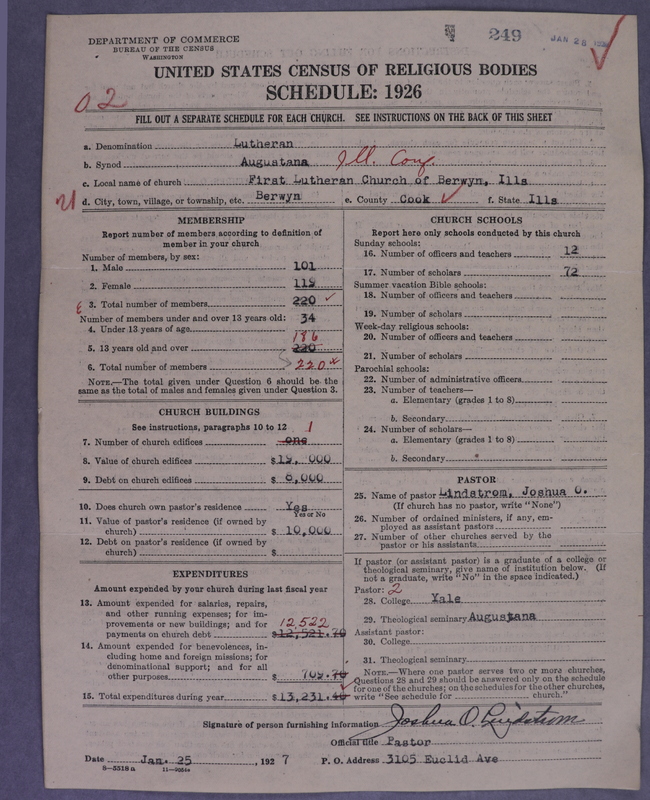 DEPARTMENT OF COMMERCE
BUREAU OF THE CENSUS
WASHINGTON
249
JAN 28
UNITED STATES CENSUS OF RELIGIOUS BODIES
SCHEDULE: 1926
02
FILL OUT A SEPARATE SCHEDULE FOR EACH CHURCH. SEE INSTRUCTIONS ON THE BACK OF THIS SHEET
a. Denomination Lutheran
b. Synod Augustana Ill. Conf.
c. Local name of church First Lutheran Church of Berwyn, Ills
d. City, town, village, or township, etc. Berwyn e. County Cook f. State Ills
MEMBERSHIP
Report number of members according to definition of
member in your church
Number of members, by sex:
1. Male 101
2. Female 119
3. Total number of members 220
Number of members under and over 13 years old:
4. Under 13 years of age 34
186
5. 13 years old and over 220
6. Total number of members 220
NOTE.—The total given under Question 6 should be the
same as the total of males and females given under Question 3.
CHURCH BUILDINGS
See instructions, paragraphs 10 to 12
7. Number of church edifices one 1
8. Value of church edifices $19,000
9. Debt on church edifices $ 6,000
10. Does church own pastor's residence Yes
Yes or No
11. Value of pastor's residence (if owned by
church) $ 10,000
12. Debt on pastor's residence (if owned by
church) $
EXPENDITURES
Amount expended by your church during last fiscal year
13. Amount expended for salaries, repairs,
and other running expenses; for im-
provements or new buildings; and for 12,522
payments on church debt $12,521.70
14. Amount expended for benevolences, in-
cluding home and foreign missions; for
denominational support; and for all
other purposes $ 709.70
15. Total expenditures during year $13,231.40
CHURCH SCHOOLS
Report here only schools conducted by this church
Sunday schools:
16. Number of officers and teachers 12
17. Number of scholars 72
Summer vacation Bible schools:
18. Number of officers and teachers
19. Number of scholars
Week-day religious schools:
20. Number of officers and teachers
21. Number of scholars
Parochial schools:
22. Number of administrative officers
23. Number of teachers—
a. Elementary (grades 1 to 8)
b. Secondary
24. Number of scholars—
a. Elementary (grades 1 to 8)
b. Secondary
PASTOR
25. Name of pastor Lindstrom, Joshua O.
(If church has no pastor, write "None")
26. Number of ordained ministers, if any, em-
ployed as assistant pastors
27. Number of other churches served by the
pastor or his assistants
If pastor (or assistant pastor) is a graduate of a college or
theological seminary, give name of institution below. (If
not a graduate, write "No" in the space indicated.)
Pastor: 2
28. College Yale
29. Theological seminary Augustana
Assistant pastor:
30. College
31. Theological seminary
NOTE.—Where one pastor serves two or more churches,
Questions 28 and 29 should be answered only on the schedule
for one of the churches; on the schedules for the other churches,
write "See schedule for church."
Signature of person furnishing information Joshua O. Lindstrom
Official title Pastor
Date Jan. 25, 1927 P. O. Address 3105 Euclid Ave
8—5518a 11—9264